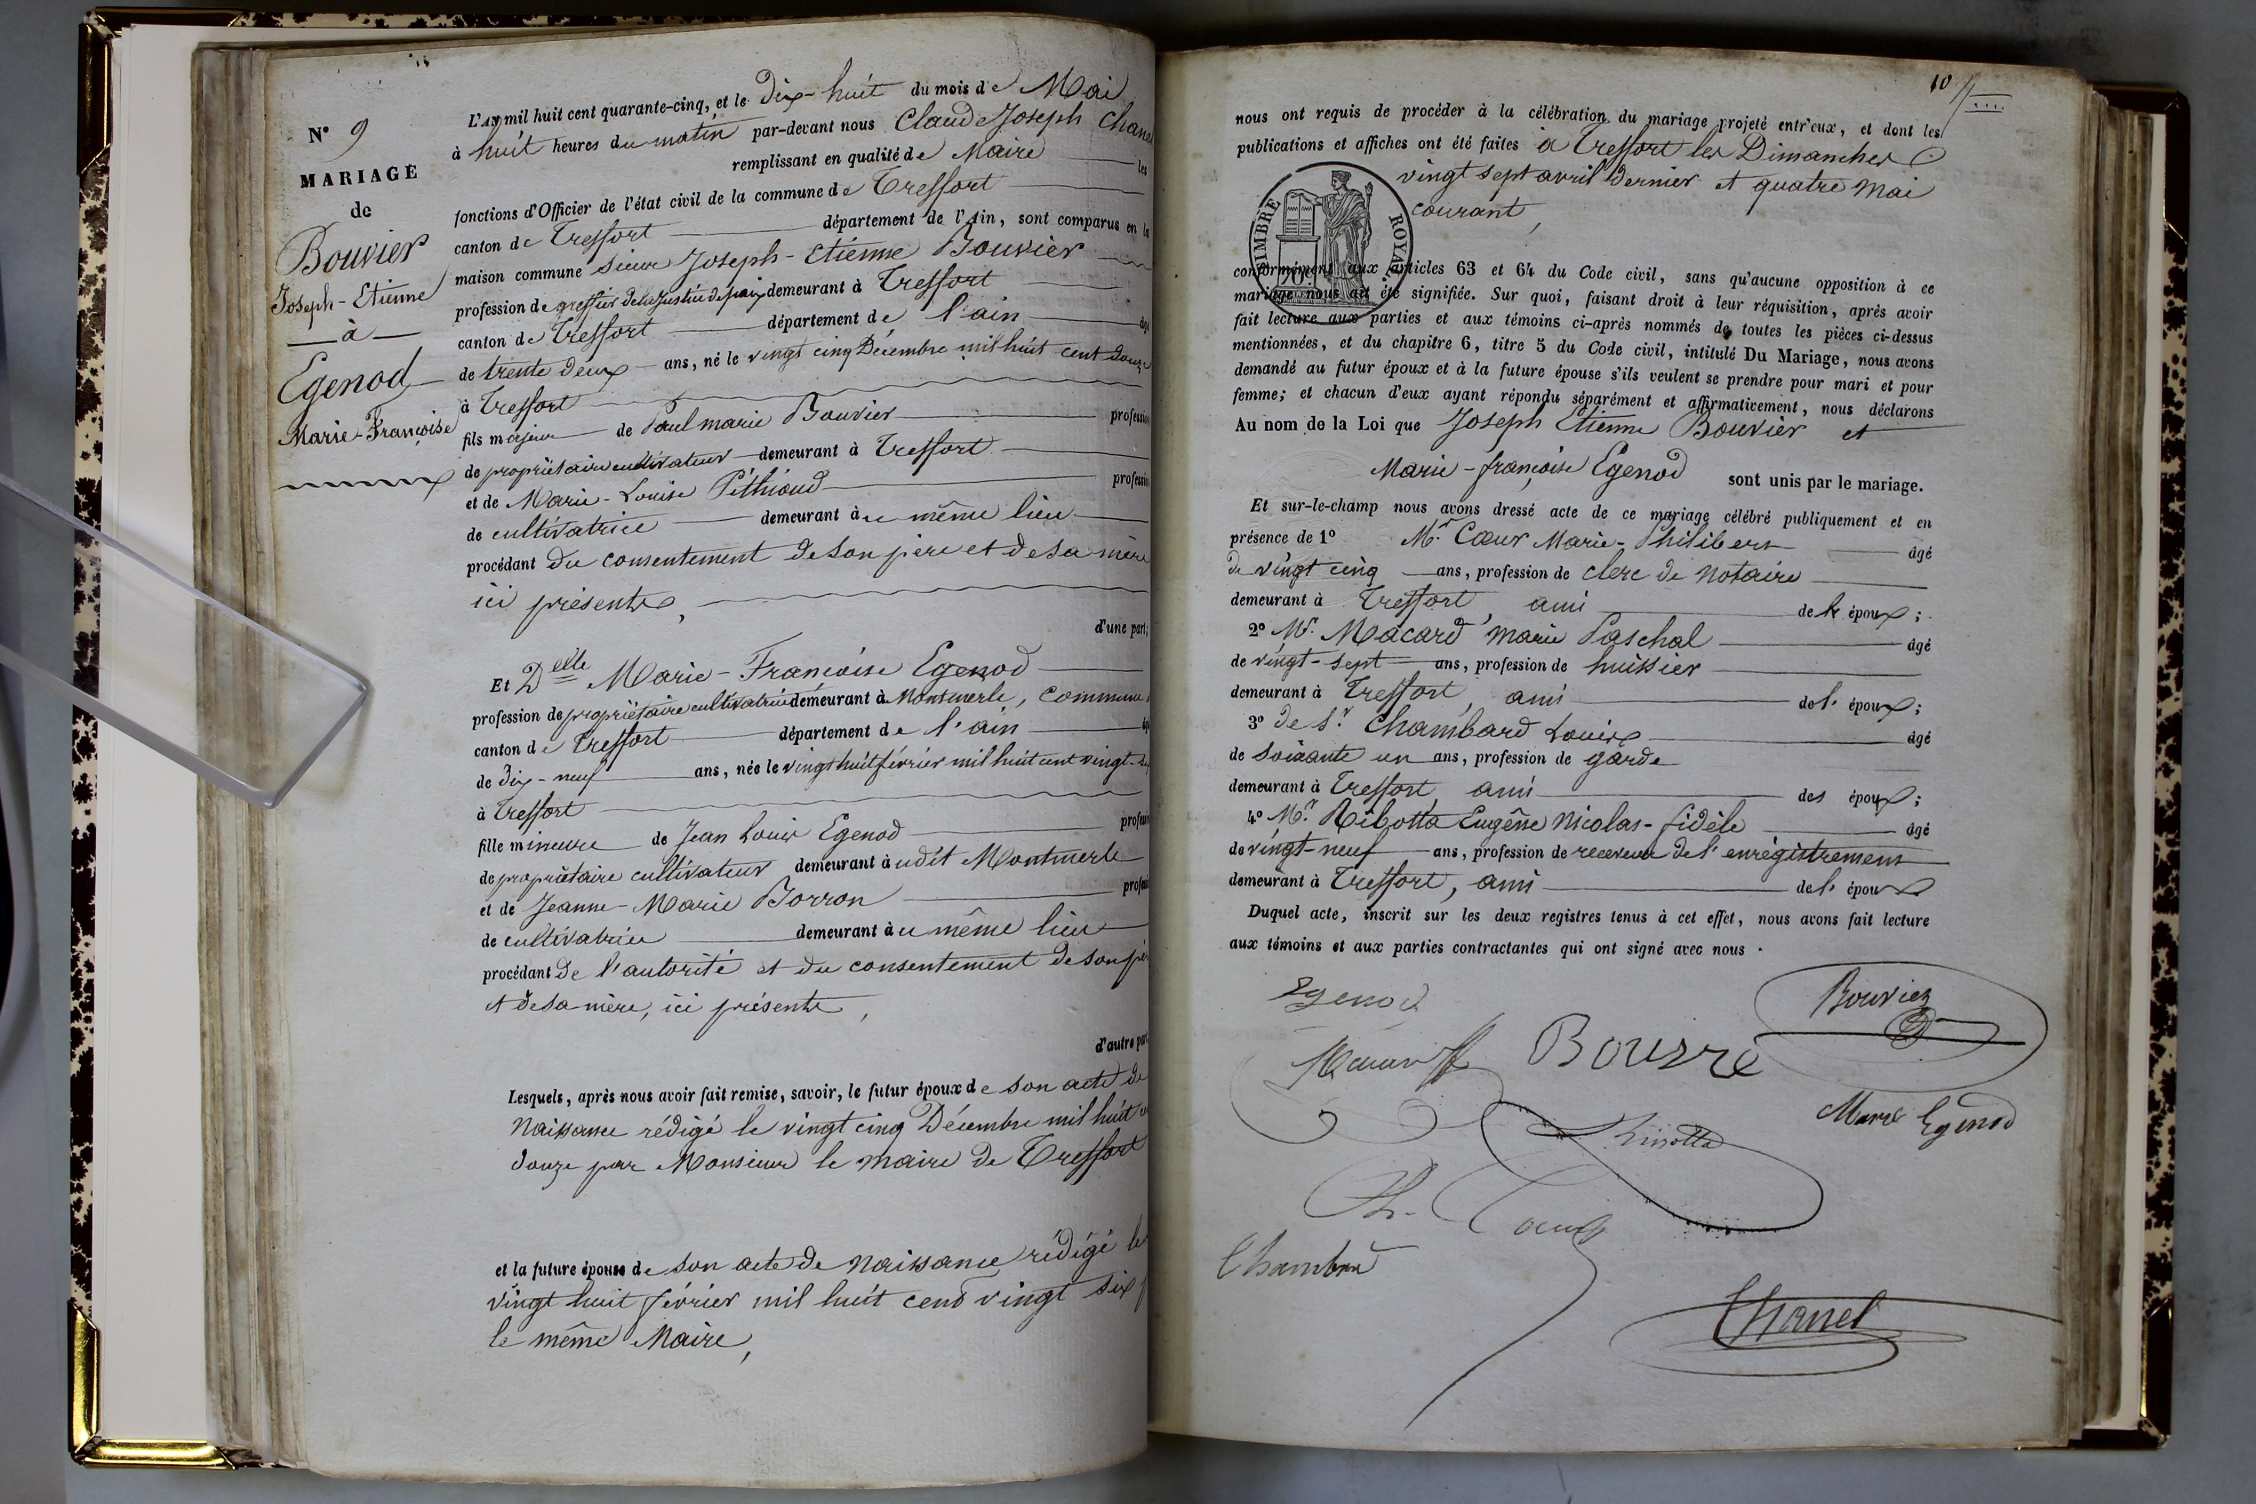 N° 9
MARIAGE
de
Bouvier
Joseph-Etienne
à
Egenod
Marie-Françoise
L'An mil huit cent quarante-cinq, et le dix-huit du mois de Mai
à huit heures du matin par-devant nous Claude Joseph Chanel
remplissant en qualité de Maire les
fonctions d'Officier de l'état civil de la commune de Treffort
canton de Treffort département de l'Ain, sont comparus en la
maison commune sieur Joseph-Etienne Bouvier
profession de greffier de la justice de paix demeurant à Treffort
canton de Treffort département de l'ain âgé
de trente deux ans, né le vingt cinq Décembre mil huit cent douze
à Treffort
fils majeur de Paul marie Bouvier profession
de propriétaire cultivateur demeurant à Treffort
et de Marie-Louise Péthioud profession
de cultivatrice demeurant à u même lieu
procédant du consentement de son père et de sa mère
ici présents,
d'une part;
Et Delle Marie-Françoise Egenod
profession de propriétaire cultivatrice demeurant à Montmerle, commune
canton de Treffort département de l'ain
de dix-neuf ans, née le vingt huit février mil huit cent vingt-six
à Treffort
fille mineure de Jean Louis Egenod profession
de propriétaire cultivateur demeurant à udit Montmerle
et de Jeanne-Marie Borron profession
de cultivatrice demeurant à u même lieu
procédant de l'autorité et du consentement de son père
et de sa mère, ici présents,
d'autre part.
Lesquels, après nous avoir fait remise, savoir, le futur époux de son acte de
Naissance rédigé le vingt cinq Décembre mil huit
douze par Monsieur le maire de Treffort
et la future épouse de son acte de naissance rédigé le
vingt huit février mil huit cent vingt six
le même Maire,
10
nous ont requis de procéder à la célébration du mariage projeté entr'eux, et dont les
publications et affiches ont été faites à Treffort les Dimanches
vingt sept avril dernier et quatre Mai
courant,
TIMBRE ROYAL
conformément aux articles 63 et 64 du Code civil, sans qu'aucune opposition à ce
mariage nous ait été signifiée. Sur quoi, faisant droit à leur réquisition, après avoir
fait lecture aux parties et aux témoins ci-après nommés de toutes les pièces ci-dessus
mentionnées, et du chapitre 6, titre 5 du Code civil, intitulé Du Mariage, nous avons
demandé au futur époux et à la future épouse s'ils veulent se prendre pour mari et pour
femme; et chacun d'eux ayant répondu séparément et affirmativement, nous déclarons
Au nom de la Loi que Joseph Etienne Bouvier et
Marie-françoise Egenod sont unis par le mariage.
Et sur-le-champ nous avons dressé acte de ce mariage célébré publiquement et en
présence de 1° Mr. Cœur Marie-Philibert âgé
de vingt cinq ans, profession de clerc de Notaire
demeurant à Treffort, ami de l' époux;
2° Mr. Macard Marie Paschal âgé
de vingt-sept ans, profession de huissier
demeurant à Treffort, ami de l' époux;
3° de Sr. Chambard Louis âgé
de soixante un ans, profession de garde
demeurant à Treffort, ami des époux;
4° Mr. Ribotta Eugène Nicolas-fidèle âgé
de vingt-neuf ans, profession de receveur de l'enrégistrement
demeurant à Treffort, ami de l' époux
Duquel acte, inscrit sur les deux registres tenus à cet effet, nous avons fait lecture
aux témoins et aux parties contractantes qui ont signé avec nous.
Egenod
Bouvier
Marie Egenod
Chanel